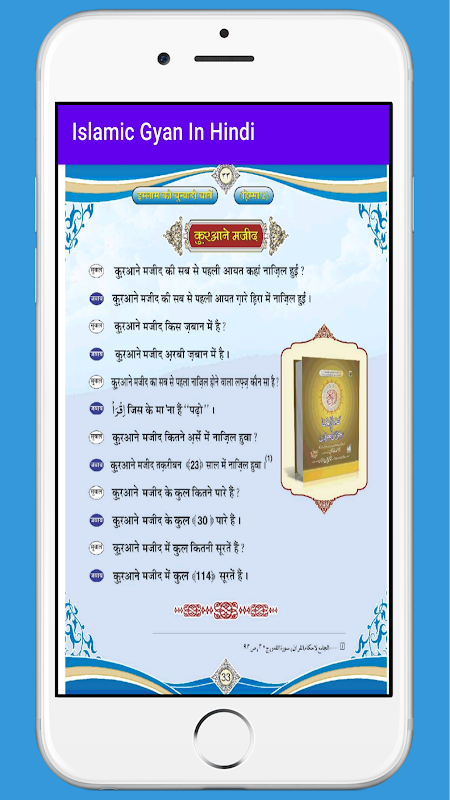 Islamic Gyan In Hindi
٣٣
इस्लाम की बुन्यादी बातें
हिस्सा 2
क़ुरआने मजीद
सुवाल क़ुरआने मजीद की सब से पहली आयत कहां नाज़िल हुई ?
जवाब क़ुरआने मजीद की सब से पहली आयत ग़ारे हिरा में नाज़िल हुई ।
सुवाल क़ुरआने मजीद किस ज़बान में है ?
जवाब क़ुरआने मजीद अ़रबी ज़बान में है ।
सुवाल क़ुरआने मजीद का सब से पहला नाज़िल होने वाला लफ़्ज़ कौन सा है ?
जवाब اِقْرَاْ जिस के मा'ना हैं "पढ़ो" ।
सुवाल क़ुरआने मजीद कितने अ़र्से में नाज़िल हुवा ?
जवाब क़ुरआने मजीद तक़रीबन ﴾23﴿ साल में नाज़िल हुवा ।(1)
सुवाल क़ुरआने मजीद के कुल कितने पारे हैं ?
जवाब क़ुरआने मजीद के कुल ﴾30﴿ पारे हैं ।
सुवाल क़ुरआने मजीद में कुल कितनी सूरतें हैं ?
जवाब क़ुरआने मजीद में कुल ﴾114﴿ सूरतें हैं ।
33